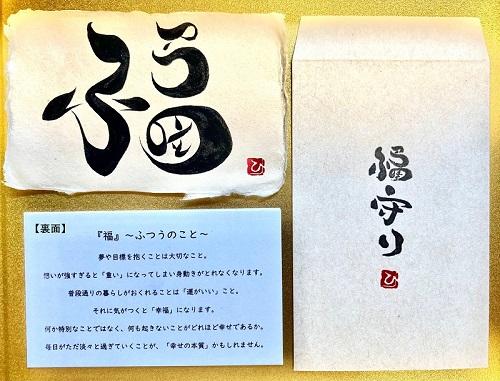 福
ひ
福守り
ひ
【裏面】
『福』～ふつうのこと～
夢や目標を抱くことは大切なこと。
想いが強すぎると「重い」になってしまい身動きがとれなくなります。
普段通りの暮らしがおくれることは「運がいい」こと。
それに気がつくと「幸福」になります。
何か特別なことではなく、何も起きないことがどれほど幸せであるか。
毎日がただ淡々と過ぎていくことが、「幸せの本質」かもしれません。